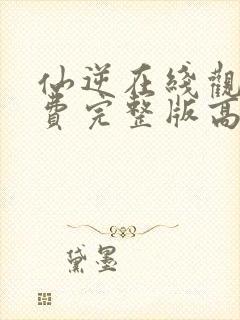 仙逆在綫觀
費完整版高
黛墨